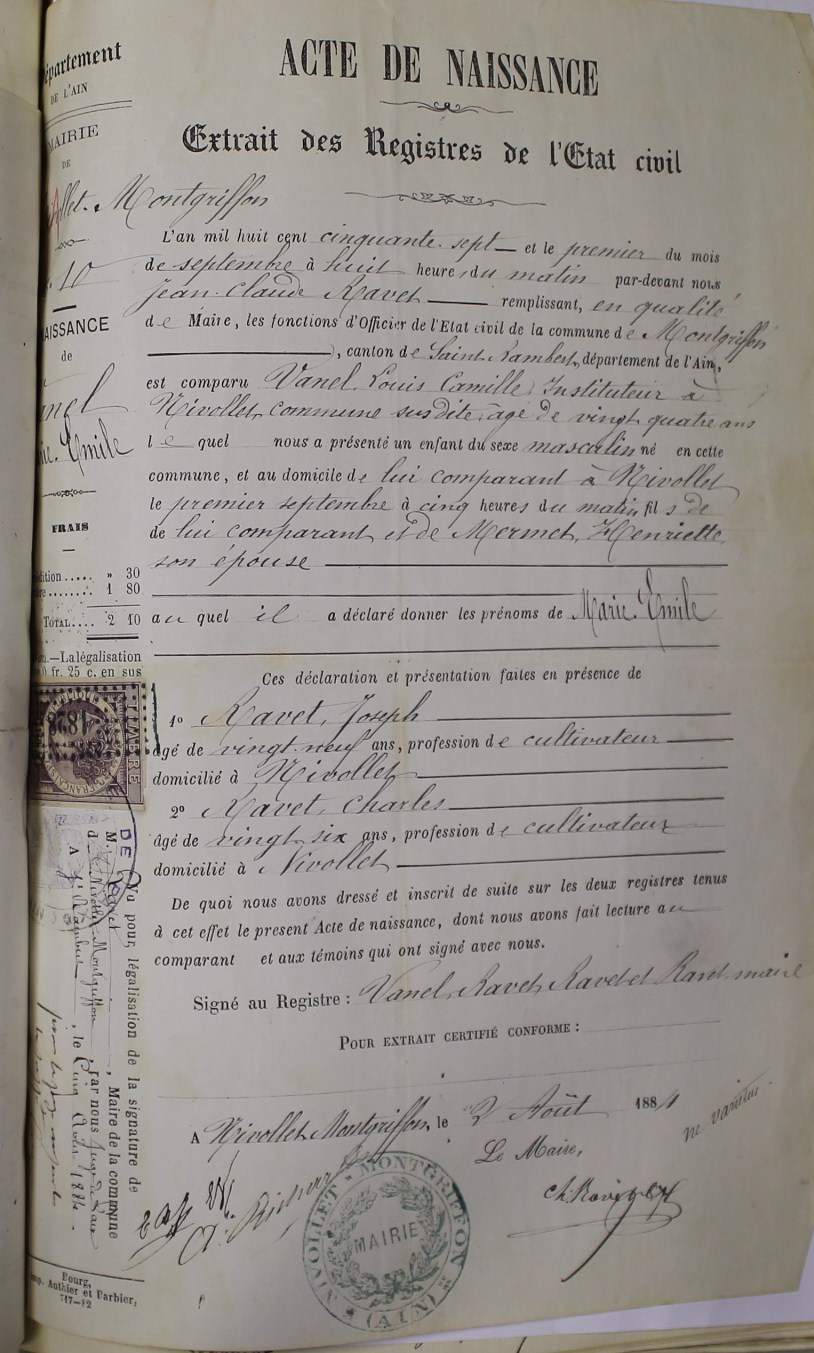 épartement
DE L'AIN
MAIRIE
DE
llet-Montgriffon
10
AISSANCE
de
anel
Marie Emile
FRAIS
dition..... » 30
....... 1 80
TOTAL.... 2 10
—La légalisation
fr. 25 c. en sus
TIMBRE
ACTE DE NAISSANCE
Extrait des Registres de l'Etat civil
L'an mil huit cent cinquante-sept — et le premier du mois
de septembre à huit heures du matin par-devant nous
Jean-Claude Ravet — remplissant, en qualité
de Maire, les fonctions d'Officier de l'Etat civil de la commune de Montgriffon
), canton de Saint-Rambert, département de l'Ain,
est comparu Vanel Louis Camille, Instituteur à
Nivollet, commune susdite, âgé de vingt quatre ans
lequel nous a présenté un enfant du sexe masculin né en cette
commune, et au domicile de lui comparant à Nivollet
le premier septembre à cinq heures du matin, fils de
de lui comparant et de Mermet, Henriette
son épouse
auquel il a déclaré donner les prénoms de Marie-Emile
Ces déclaration et présentation faites en présence de
1º Ravet, Joseph
âgé de vingt-neuf ans, profession de cultivateur
domicilié à Nivollet
2º Ravet, Charles
âgé de vingt six ans, profession de cultivateur
domicilié à Nivollet
De quoi nous avons dressé et inscrit de suite sur les deux registres tenus
à cet effet le present Acte de naissance, dont nous avons fait lecture au
comparant et aux témoins qui ont signé avec nous.
Signé au Registre : Vanel, Ravet, Ravet et Ravet maire
POUR EXTRAIT CERTIFIÉ CONFORME :
A Nivollet Montgriffon, le 2 Août 1884
Le Maire,
ne varietur
NIVOLLET-MONTGRIFFON
MAIRIE
(AIN)
Vu pour légalisation de la signature de
M. Ravet, Maire de la commune
d Nivollet-Montgriffon par nous Juge de Paix
A St Rambert, le Cinq Août 1884.
Bourg,
Authier et Barbier,